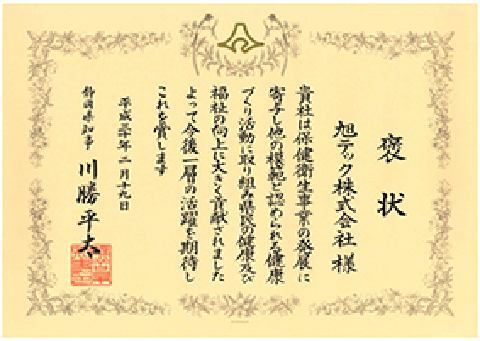 褒状
旭テック株式会社 様
貴社は保健衛生事業の発展に
寄与し他の模範と認められる健康
づくり活動に取り組み県民の健康及び
福祉の向上に大きく貢献されました
よって今後一層の活躍を期待し
これを賞します
平成三十年二月十九日
静岡県知事 川勝平太